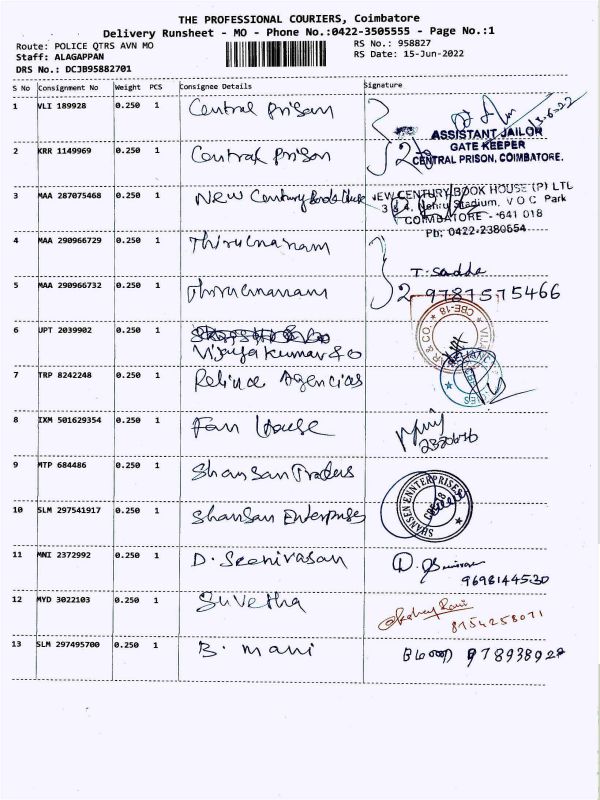 THE PROFESSIONAL COURIERS, Coimbatore
Delivery Runsheet - MO - Phone No.:0422-3505555 - Page No.:1
Route: POLICE QTRS AVN MO
RS No.: 958827
Staff: ALAGAPPAN
RS Date: 15-Jun-2022
DRS No.: DCJB95882701
S No Consignment No Weight PCS Consignee Details Signature
1 VLI 189928 0.250 1 Central Prison
15.6.22
ASSISTANT JAILOR
GATE KEEPER
CENTRAL PRISON, COIMBATORE.
2 KRR 1149969 0.250 1 Central Prison
2
3 MAA 287075468 0.250 1 New Century Books House
NEW CENTURY BOOK HOUSE (P) LTD
3 & 4, Nehru Stadium, V O C Park
COIMBATORE - 641 018
Ph: 0422-2380554
4 MAA 290966729 0.250 1 Thirumanam
T. Sadda
5 MAA 290966732 0.250 1 Thirumanam
2 9787575466
6 UPT 2039902 0.250 1
Vijayakumar & Co
& CO. CBE-18
7 TRP 8242248 0.250 1 Reliance Agencies
8 IXM 501629354 0.250 1 Fan House
9 MTP 684486 0.250 1 Shansan Traders
10 SLM 297541917 0.250 1 Shansan Enterprises
SHANSEN ENNTERPRISES
11 MNI 2372992 0.250 1 D. Seenivasan
9698144530
12 MYD 3022103 0.250 1 Suvetha
8754258071
13 SLM 297495700 0.250 1 B. Mani
மணி 978938927